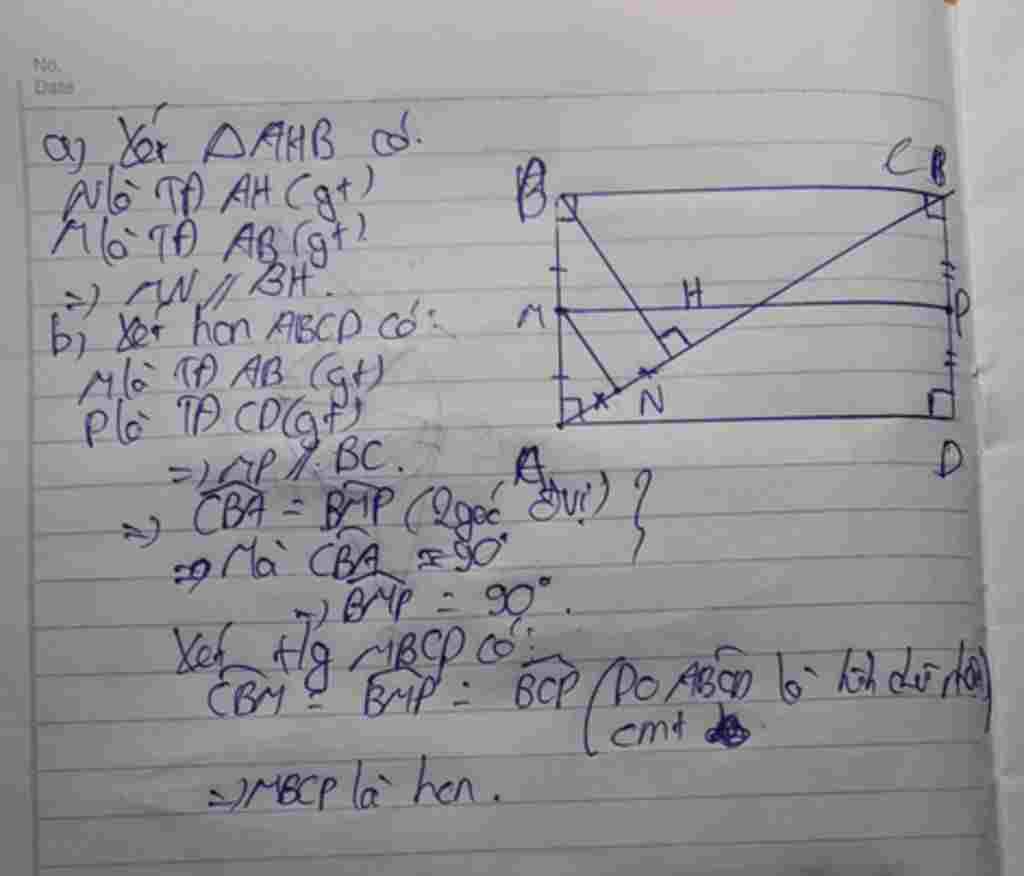 No.
Date
a) Xét △AHB có.
N là TĐ AH (gt)
M là TĐ AB (gt)
=) MN // BH.
b) Xét hcn ABCD có:
M là TĐ AB (gt)
P là TĐ CD (gt)
=) MP // BC.
=) CBA = BMP (2 góc đvị) }
=) Mà CBA = 90°
=) BMP = 90°.
Xét t/g MBCP có:
CBM = BMP = BCP (Do ABCD là hình chữ nhật)
cmt
=) MBCP là hcn.
B
C B
M
H
P
N
A
D